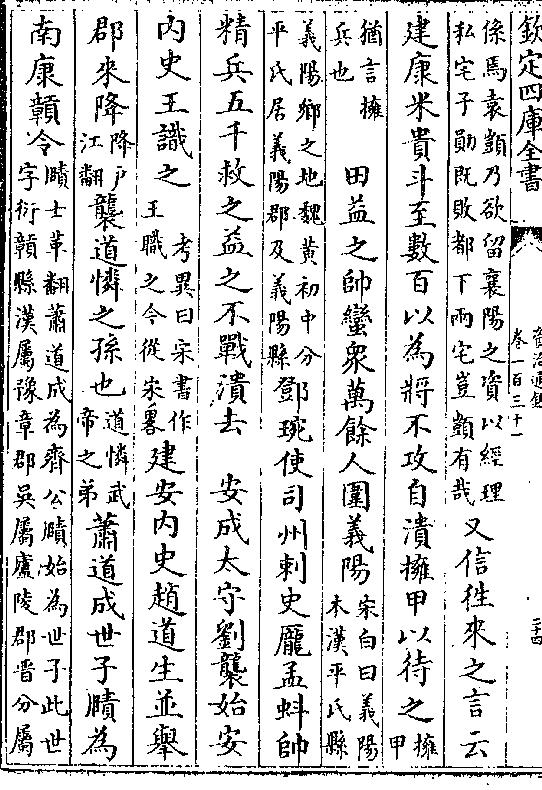 欽定四庫全書
資治通鑑
卷一百三十一
二十四
係馬袁顗乃欲留襄陽之資以經理
私宅子勛既敗都下兩宅豈顗有哉
又信徃來之言云
建康米貴斗至數百以為將不攻自潰擁甲以待之
擁
甲
猶言擁
兵也
田益之帥蠻衆萬餘人圍義陽
宋白曰義陽
本漢平氏縣
義陽鄉之地魏黄初中分
平氏居義陽郡及義陽縣
鄧琬使司州刺史龐孟蚪帥
精兵五千救之益之不戰潰去　安成太守劉襲始安
内史王識之
考異曰宋書作
王職之今從宋畧
建安内史趙道生並舉
郡來降
降户
江翻
襲道憐之孫也
道憐武
帝之弟
蕭道成世子賾為
南康贑令
賾士革翻蕭道成為齊公賾始為世子此世
字衍贑縣漢屬豫章郡吳屬廬陵郡晋分屬